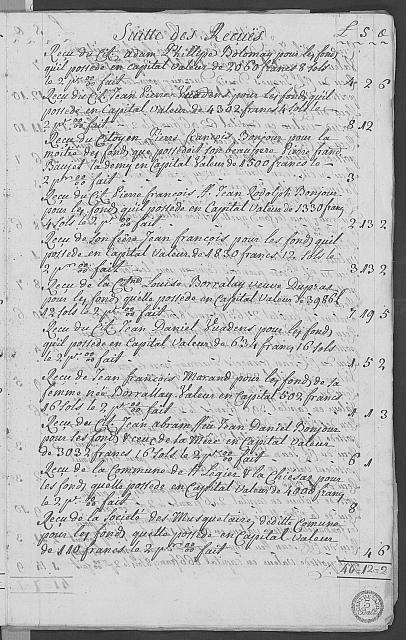 Suitte des Recües £ S d
Recu du Cit. adam Phillipe Bolomay pour les fonds
quil possède en Capital valeur de 2060 francs 8 sols
le 2 pr 00/00 fait 4 2 6
Recu du Cit. Jean Pierre pour les fonds quil
possède en Capital valeur de 4302 francs 4 sols le
2 pr 00/00 fait 8 12
Recu du Citoyen Pierre francois Bonjour pour la
moitié du fonds que possedoit son beaupere Pierre franc
la demy en Capital Valeur de 1500 francs le
2 pr 00/00 fait 3
Recu du Cit. Pierre francois ff. Jean Rodolph Bonjour
pour les fonds quil possède en Capital Valeur de 1330 franc
4 sols le 2 pr 00/00 fait 2 13 2
Recu de son frère Jean francois pour les fonds quil
possède en Capital valeur de 1830 francs 12 sols le
2 pr 00/00 fait 3 13 2
Recu de la Citne Louise Borralay veuve Dupras
pour les fonds quelle possède en Capital Valeur de 3986
12 sols le 2 pr 00/00 fait 7 19 5
Recu du Cit. Jean Daniel pour les fonds
quil possède en Capital Valeur de 634 francs 16 sols
le 2 pr 00/00 fait 1 5 2
Recu de Jean francois Morand pour les fonds de sa
femme née Borrallay Valeur en Capital 502 francs
16 sols le 2 pr 00/00 fait 1 3
Recu du Cit. Jean Abram ffeu Jean Daniel Bonjour
pour les fonds & ceux de sa Mère en Capital Valeur
de 3032 francs 16 sols le 2 pr 00/00 fait 6 1
Recu de la Commune de St Legier & la Chiesaz pour
les fonds quelle possède en Capital Valeur de 4008 franc
le 2 pr 00/00 fait 8
Recu de la Société des Musquetaires deditte Commune
pour les fonds quelle possède en Capital Valeur
de 110 francs le 2 pr 00/00 fait 4 6
46-12-2